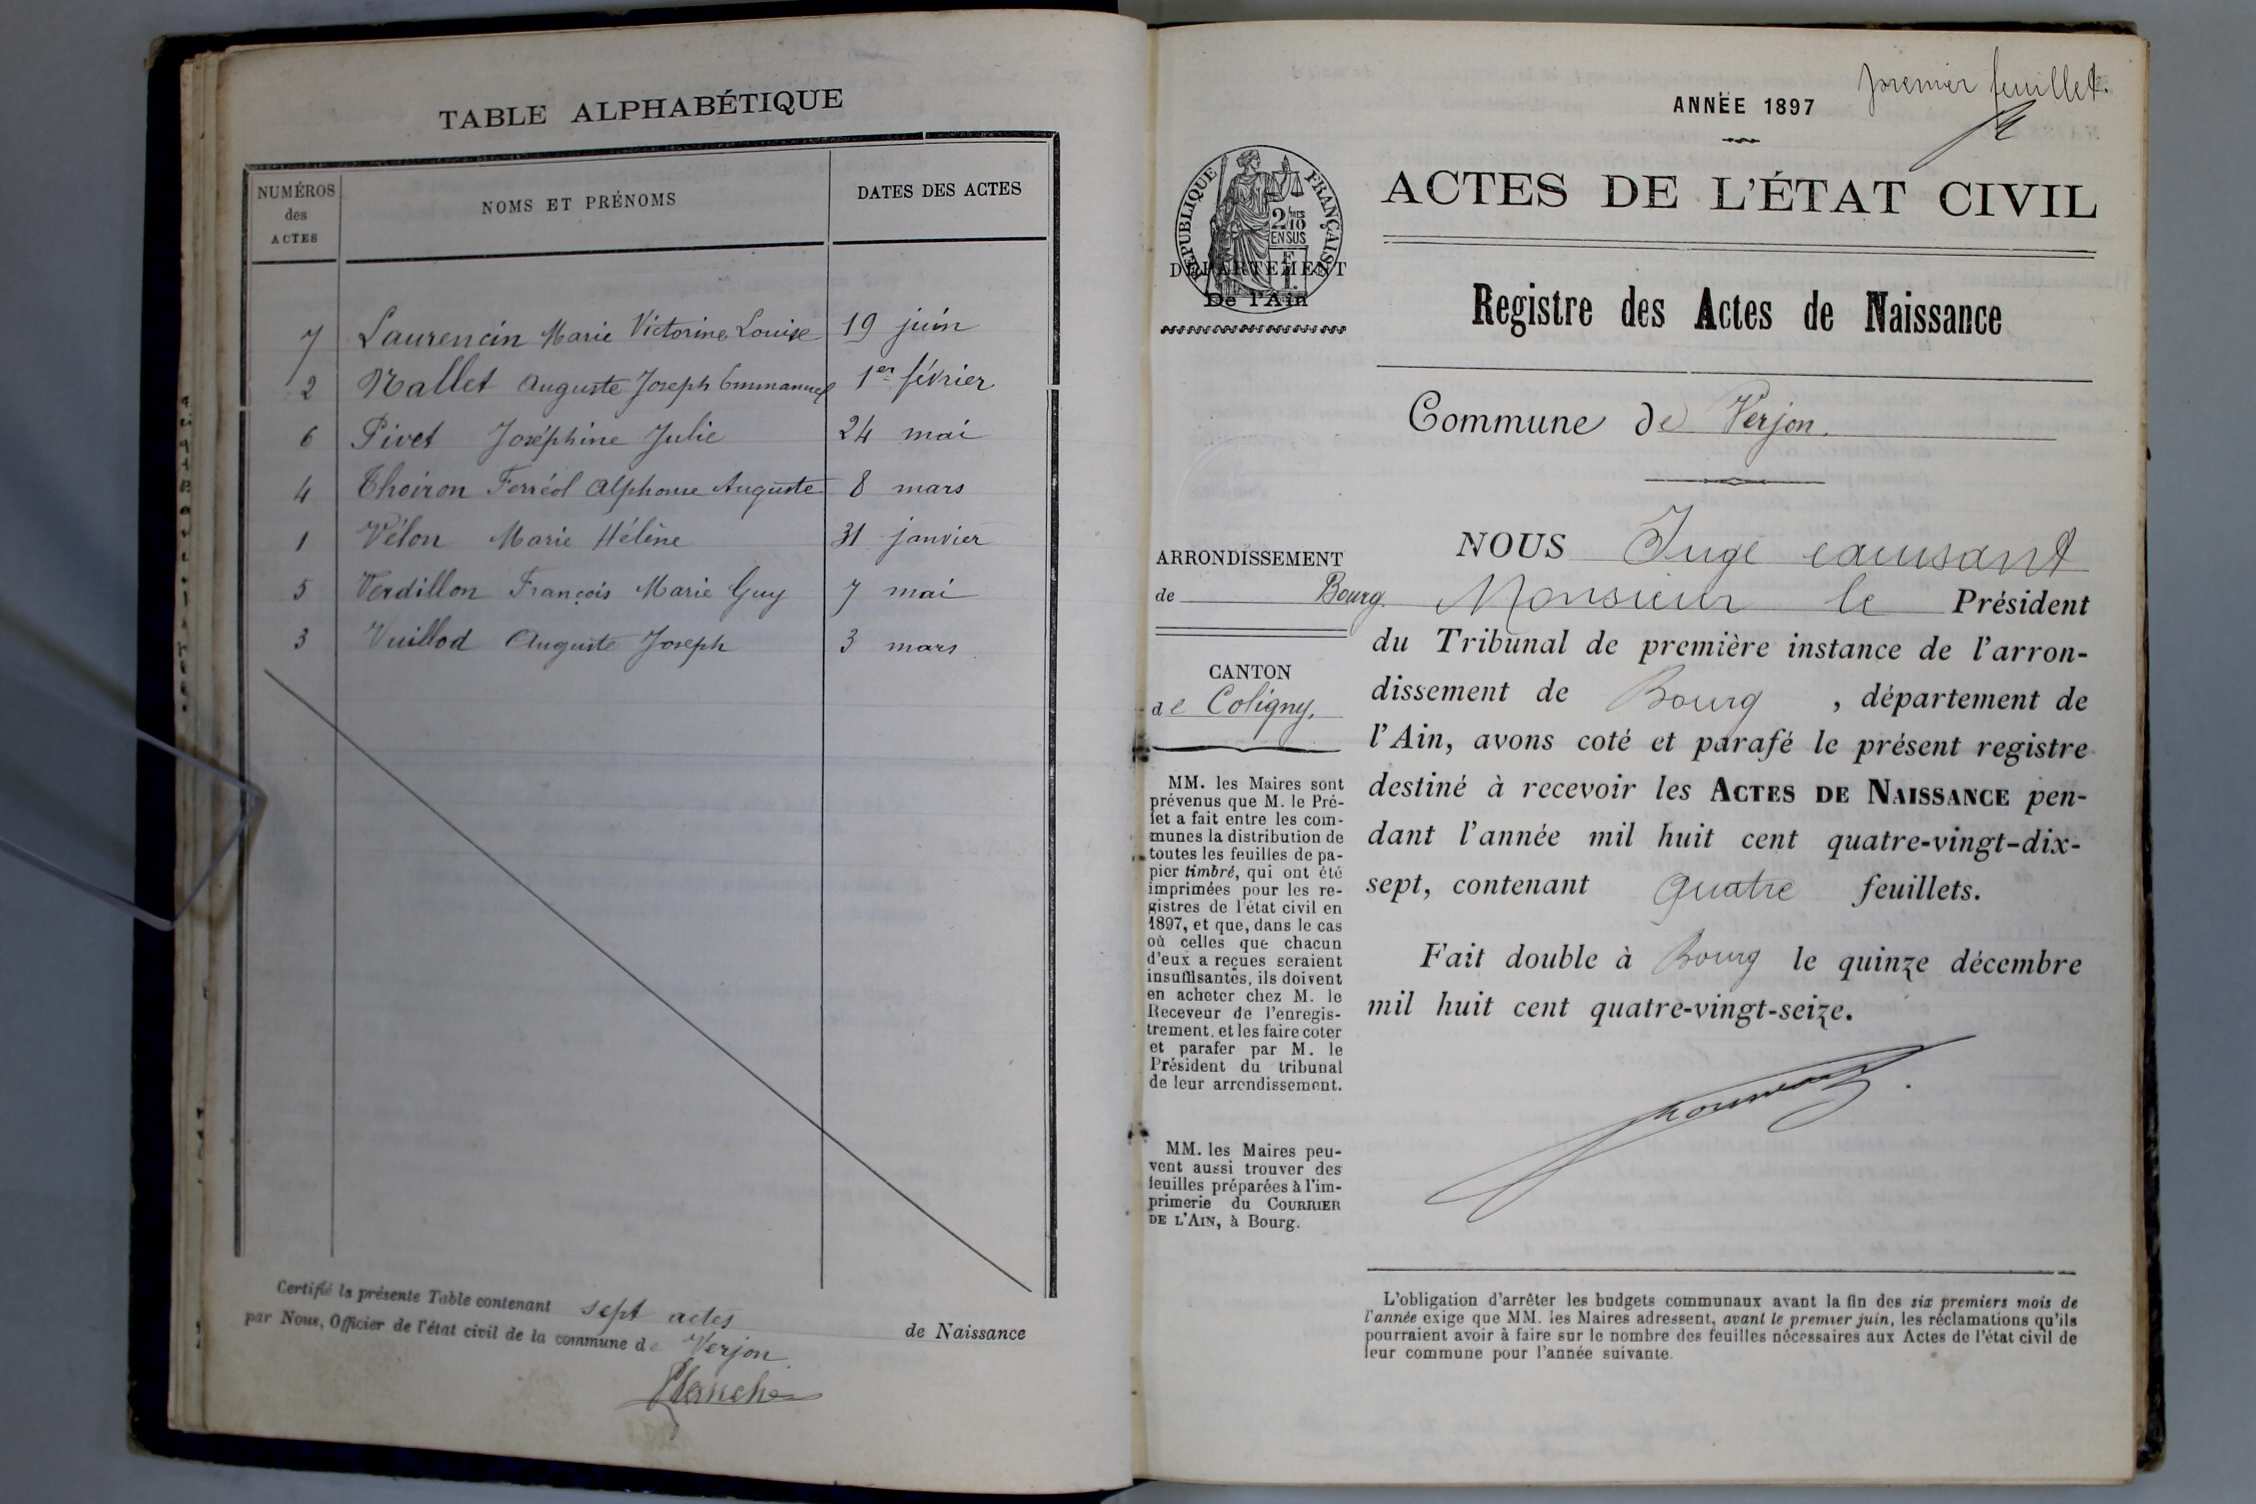 TABLE ALPHABÉTIQUE
NUMÉROS
des
ACTES
NOMS ET PRÉNOMS
DATES DES ACTES
7 Laurencin Marie Victorine Louise 19 juin
2 Nallet Auguste Joseph Emmanuel 1er février
6 Pivet Joséphine Julie 24 mai
4 Thoiron Ferréol Alphonse Auguste 8 mars
1 Vélon Marie Hélène 31 janvier
5 Verdillon François Marie Guy 7 mai
3 Vuillod Auguste Joseph 3 mars
Certifié la présente Table contenant sept actes de Naissance
par Nous, Officier de l'état civil de la commune de Verjon.
premier feuillet.
ANNÉE 1897
ACTES DE L'ÉTAT CIVIL
RÉPUBLIQUE FRANÇAISE
2/10
EN SUS
DÉPARTEMENT
De l'Ain
Registre des Actes de Naissance
Commune de Verjon.
ARRONDISSEMENT
de Bourg.
CANTON
de Coligny.
MM. les Maires sont
prévenus que M. le Pré-
fet a fait entre les com-
munes la distribution de
toutes les feuilles de pa-
pier timbré, qui ont été
imprimées pour les re-
gistres de l'état civil en
1897, et que, dans le cas
où celles que chacun
d'eux a reçues seraient
insuffisantes, ils doivent
en acheter chez M. le
Receveur de l'enregis-
trement, et les faire coter
et parafer par M. le
Président du tribunal
de leur arrondissement.
MM. les Maires peu-
vent aussi trouver des
feuilles préparées à l'im-
primerie du COURRIER
DE L'AIN, à Bourg.
NOUS Juge
Monsieur le Président
du Tribunal de première instance de l'arron-
dissement de Bourg , département de
l'Ain, avons coté et parafé le présent registre
destiné à recevoir les ACTES DE NAISSANCE pen-
dant l'année mil huit cent quatre-vingt-dix-
sept, contenant quatre feuillets.
Fait double à Bourg le quinze décembre
mil huit cent quatre-vingt-seize.
L'obligation d'arrêter les budgets communaux avant la fin des six premiers mois de
l'année exige que MM. les Maires adressent, avant le premier juin, les réclamations qu'ils
pourraient avoir à faire sur le nombre des feuilles nécessaires aux Actes de l'état civil de
leur commune pour l'année suivante.